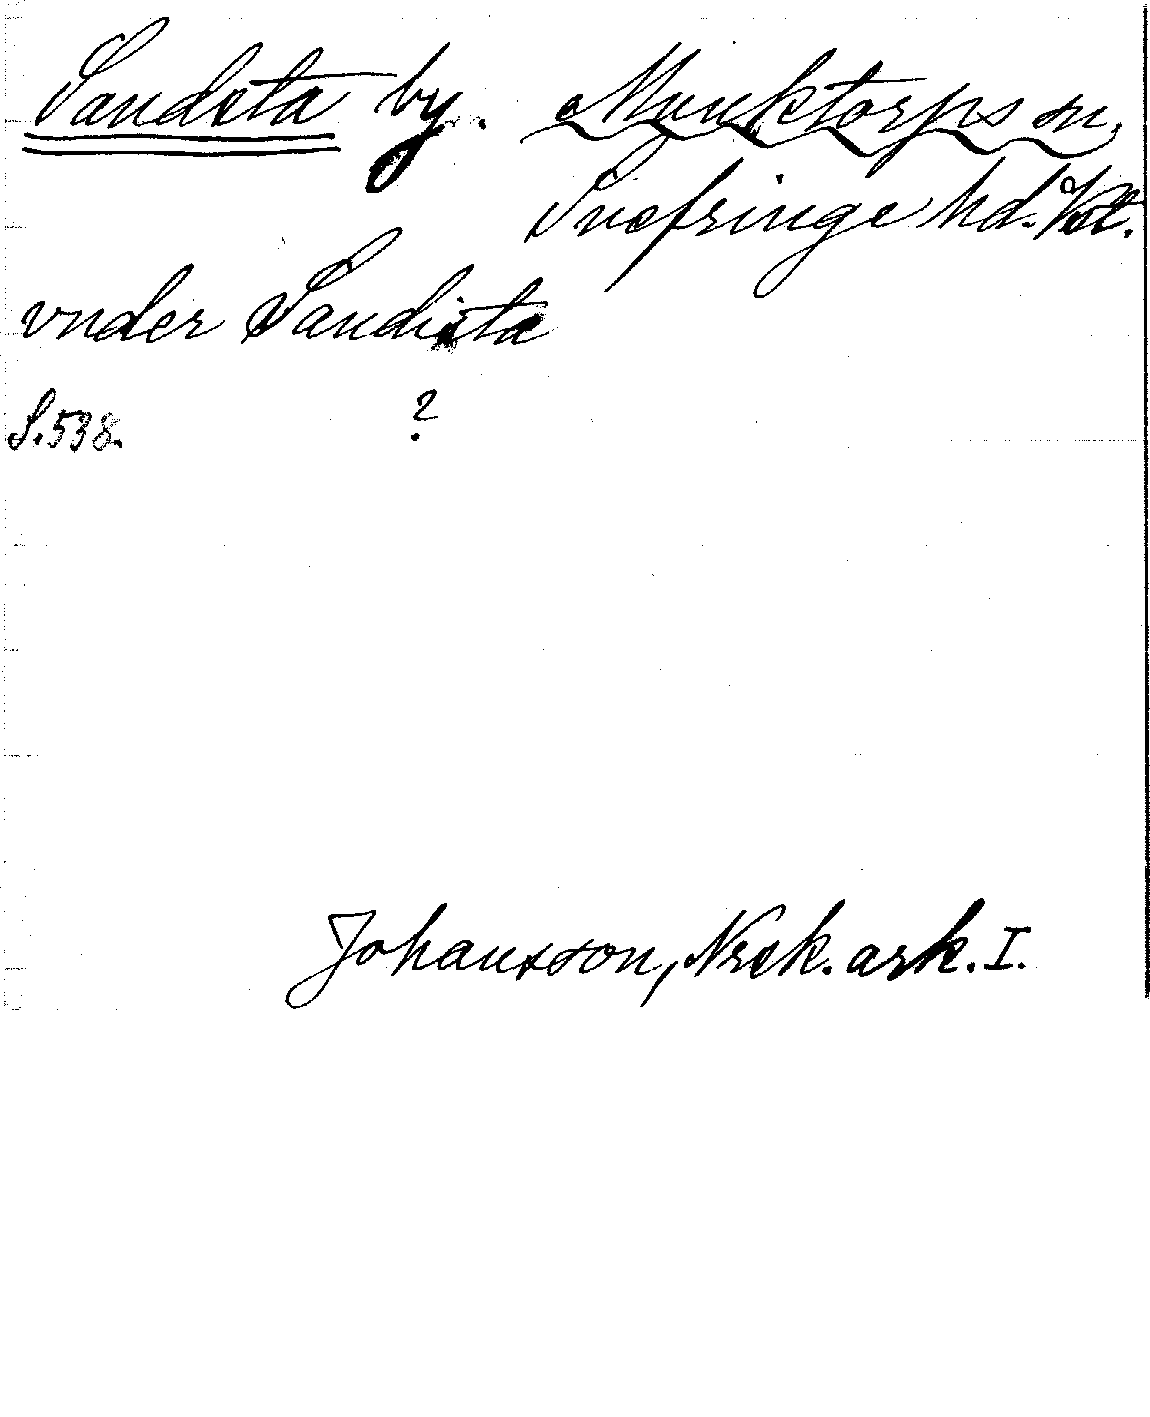 Sandsta by. Munktorps sn,
Snefringe hd. Vstl.
vnder Sandista
S. 538. ?
Johansson, Noræsk. ark. I.